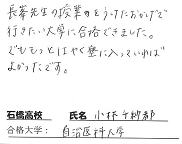 長峯先生の授業のをうけたおかげで
行きたい大学に合格できました。
でももっとはやく塾に入っていれば
よかったです。
石橋高校 氏名 小林 千利都
合格大学： 自治医科大学